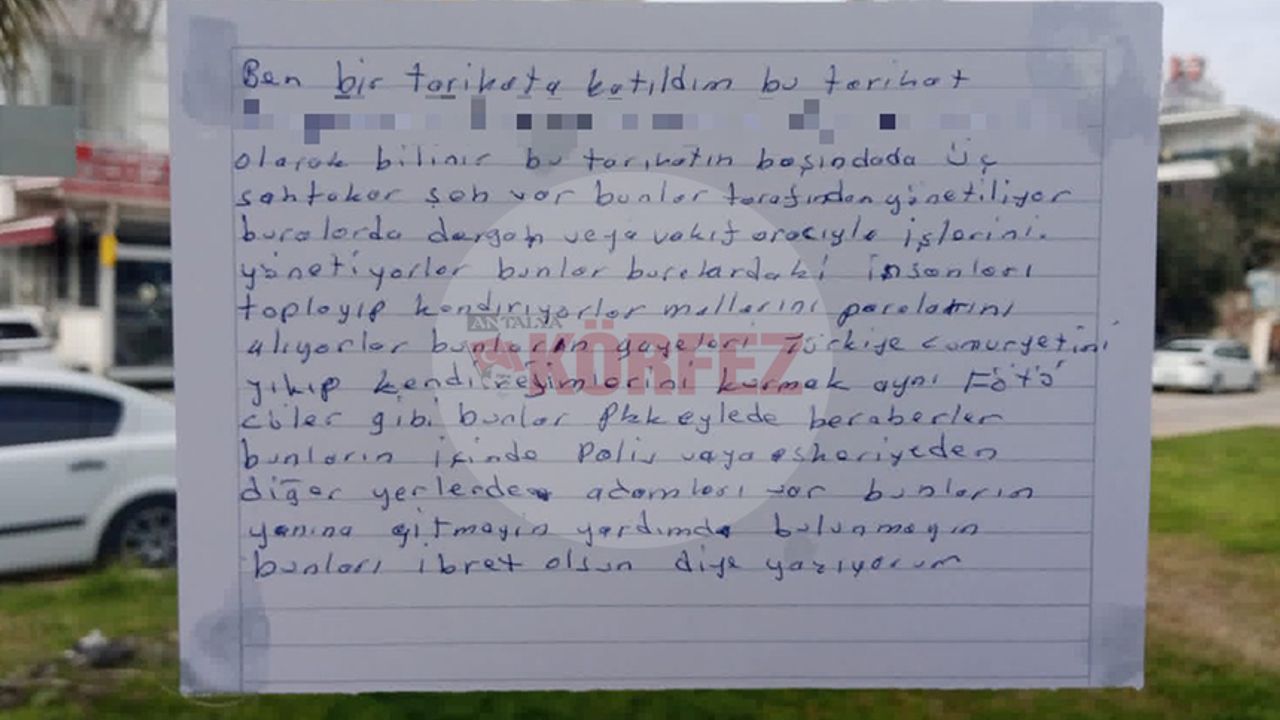 Ben bir tarikata katıldım bu tarihat
olarak bilinir bu tarihatın başındada üç
sahtekar şeh var bunlar tarafından yönetiliyor
buralarda dergah veya vakıf aracıyla işlerini.
yönetiyorlar bunlar buralardaki insanları
toplayıp kandırıyorlar mallarını paralarını
alıyorlar bunların gayeleri Türkiye cumuryetini
ANTALYA
KÖRFEZ
yıkıp kendi reğimlerini kurmak aynı Fötö
cüler gibi bunlar Pkkeylede beraberler
bunların içinde Polis vaya askeriyeden
diğer yerlerden adamları var bunların
yanına gitmayın yardımda bulunmayın
bunları ibret olsun diye yazıyorum